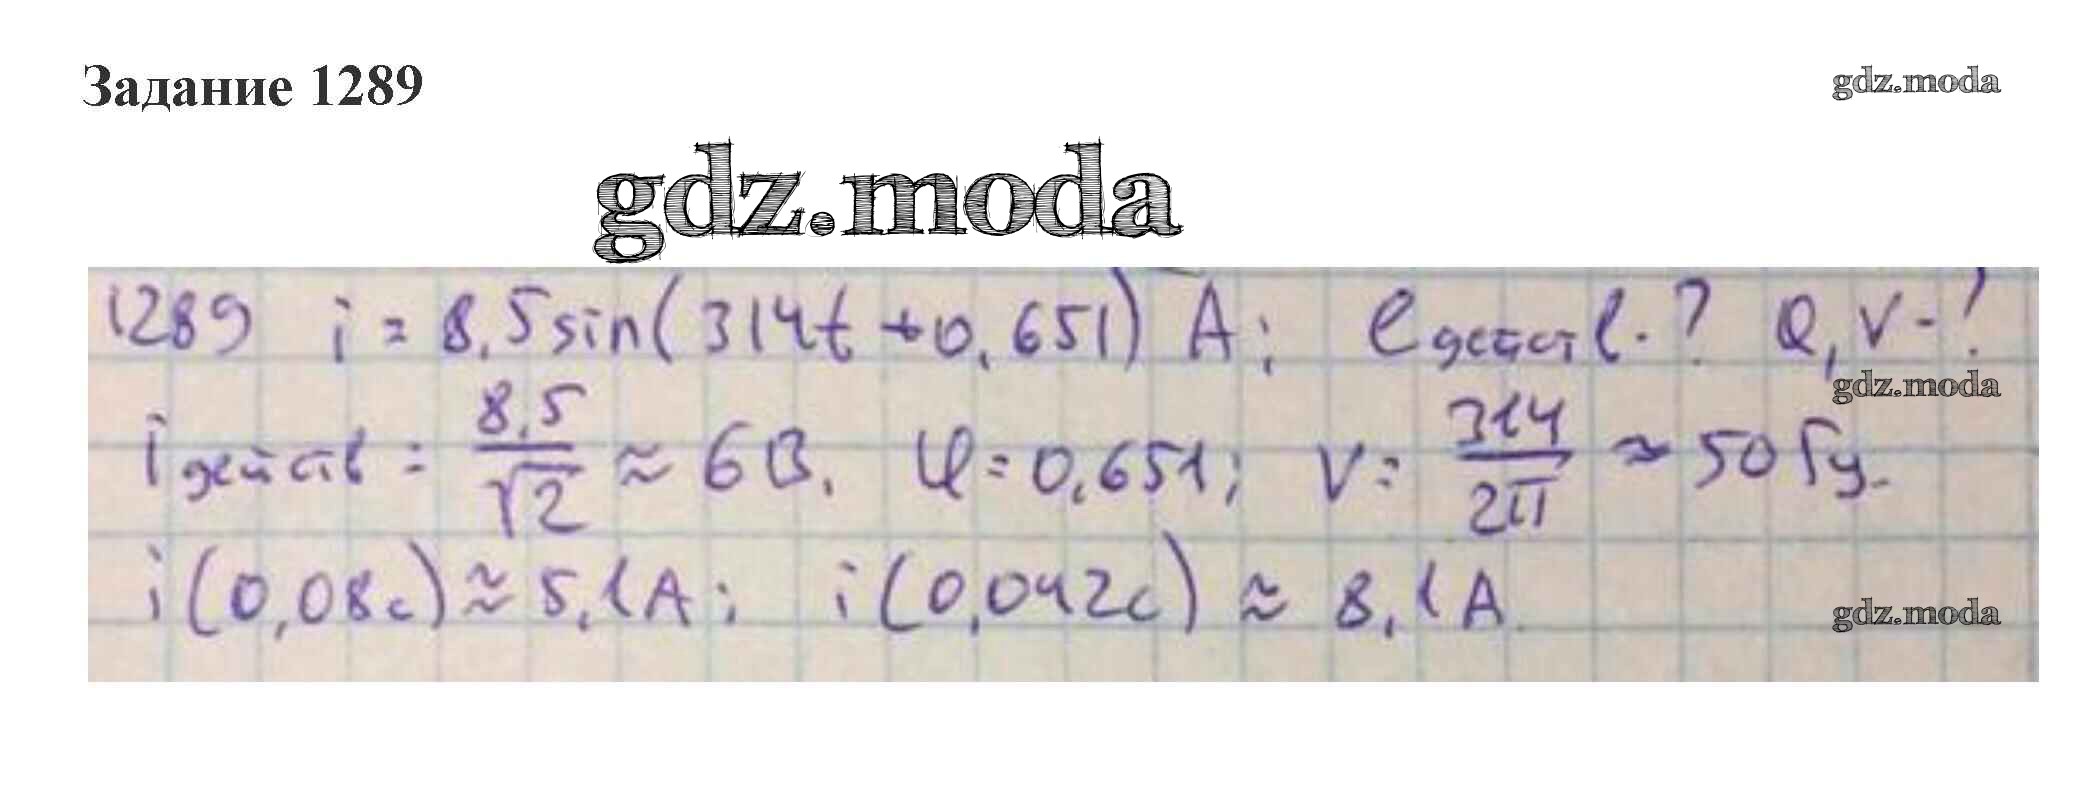 Задание 1289
gdz.moda
gdz.moda
1289 i = 8,5 sin(314t + 0,651) A; e действ - ? Q, V - ?
gdz.moda
i действ = 8,5/√2 ≈ 6 В. φ = 0,651; V = 314/2π ≈ 50 Гц.
i(0,08с) ≈ 5,1 A; i(0,042с) ≈ 8,1 A
gdz.moda